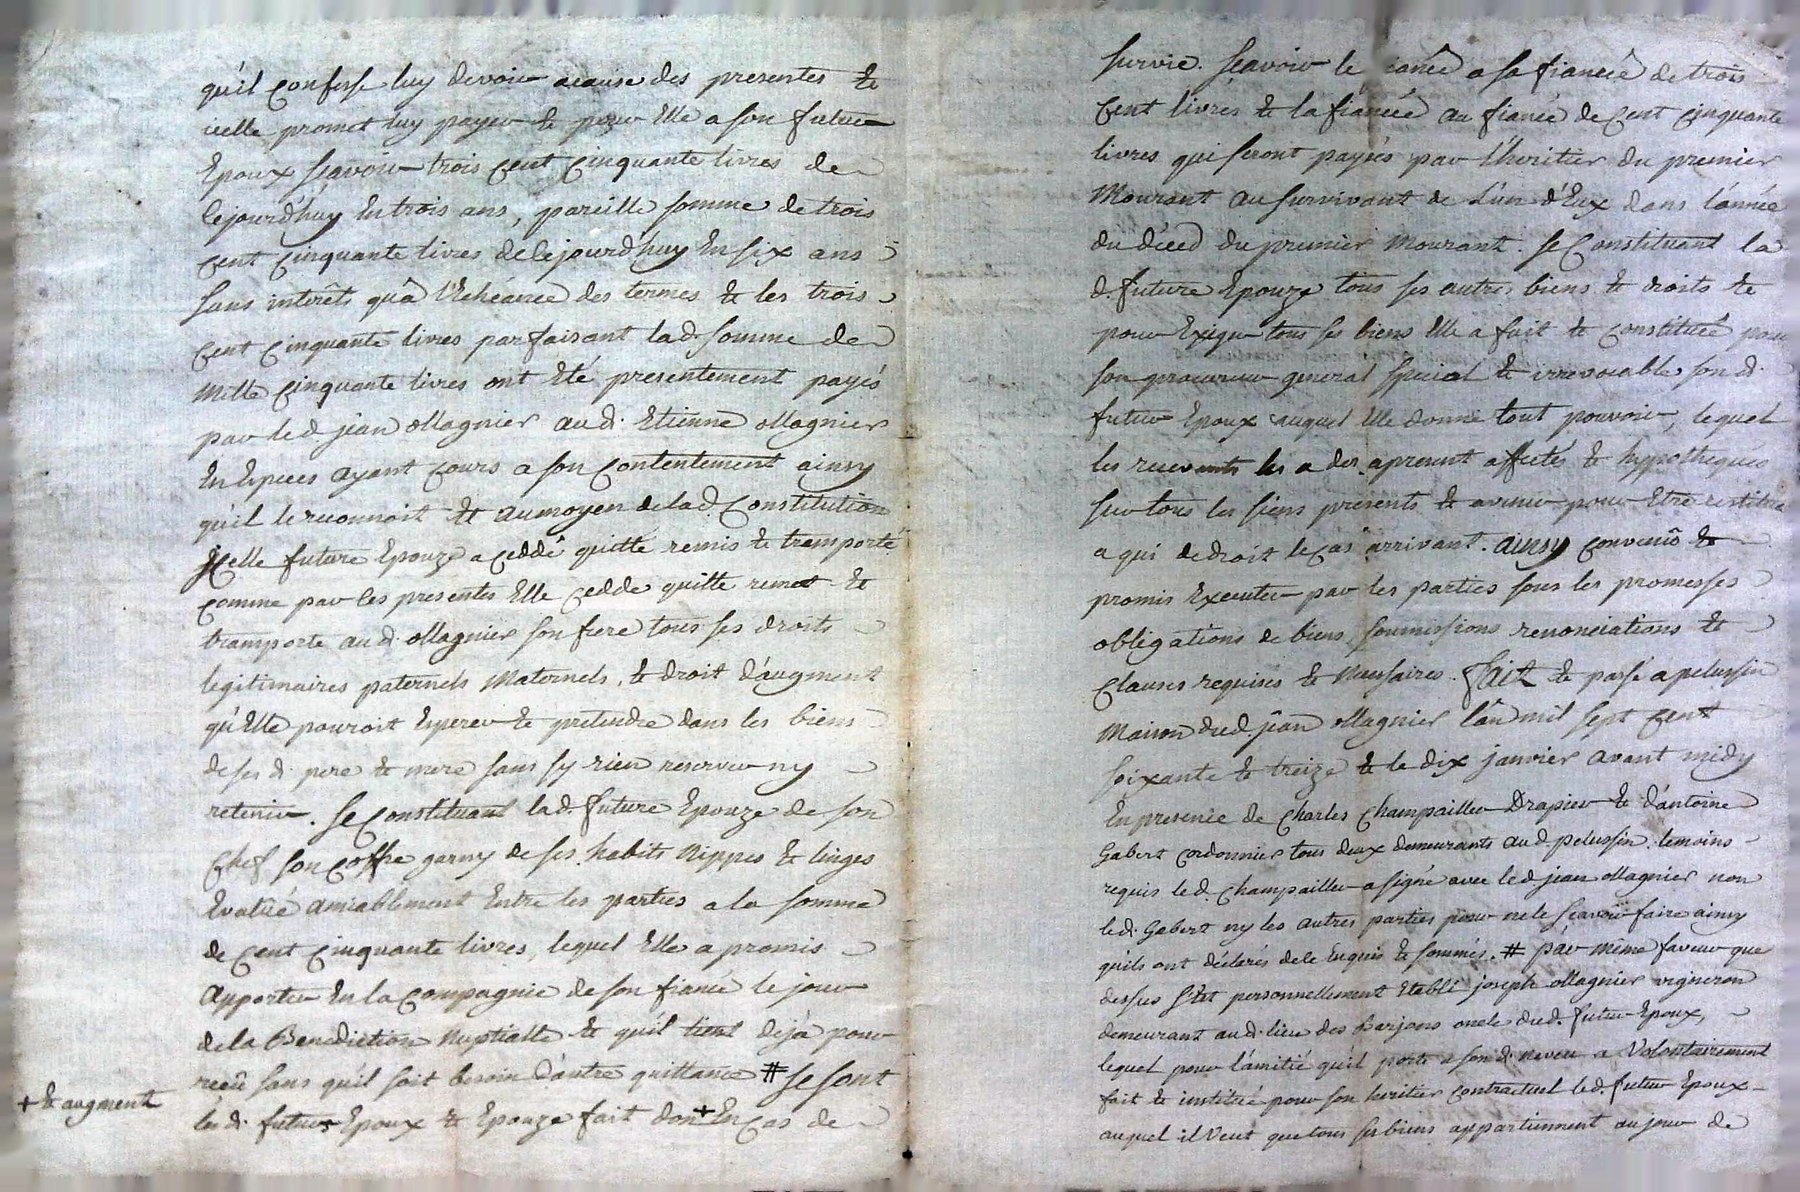 qu'il confesse luy devoir acause des presentes &
icelle promet luy payer & pour Elle a son futur
Epoux scavoir trois cent cinquante livres de
cejourd'huy En trois ans, pareille somme de trois
cent cinquante livres de cejourd'huy En six ans
sans interêts qu'â l'Echéance des termes & les trois
cent cinquante livres parfaisant lad. somme de
Mille cinquante livres ont Eté presentement payés
par led jean Magnier aud. Etienne Magnier
En Especes ayant cours a son contentement ainsy
qu'il le reconnoit Et aumoyen de lad Constitution
Jcelle future Epouze a ceddé quitté remis & transporté
comme par les presentes Elle cedde quitte remet Et
transporte aud. Magnier son frere tous ses droits
legitimaires paternels Maternels, & droit d'augment
qu'Elle pouroit Esperer & pretendre dans les biens
de ses d. pere & mere sans sy rien reserver ny
retenir. Se Constituant lad. future Epouze de son
Chef son coffre garny de ses habits Nippes & linges
Evalué amiablement Entre les parties a la somme
de cent cinquante livres, lequel Elle a promis
Apporter En la compagnie de son fiancé le jour
de la Benediction Nuptialle & qu'il tient déjà pour
reçû sans qu'il soit besoin d'autre quittance # se sont
+ & augment
les d. futurs Epoux & Epouze fait don + En cas de
survie. Scavoir le fiancé a sa fiancée de trois
Cent livres & la fiancée au fiancé de Cent cinquante
livres qui seront payés par l'heritier du premier
Mourant au survivant de l'un d'Eux dans l'année
du décéd du premier Mourant. Se Constituant la
d. future Epouze tous ses autres biens & droits &
pour Exiger tous ses biens Elle a fait & constitué pour
son procureur general special & irrevocable son d.
futur Epoux auquel Elle donne tout pouvoir, lequel
les recevants les a des apresent affectés & hypothequés
sur tous les siens presents & avenir pour Etre restitués
a qui de droit le cas arrivant. Ainsy convenû &
promis Executer par les parties sous les promesses
obligations de biens, soumissions renonciations &
Clauses requises & Necessaires. Fait & passé a pelussin
Maison dud. jean Magnier l'an mil sept cent
soixante & treize & le dix janvier avant midy
En presence de Charles Champailler Drapier & d'antoine
Gabert cordonnier tous deux demeurants aud. pelussin temoins
requis led. Champailler a signé avec led jean Magnier non
led. Gabert ny les autres parties pour ne le scavoir faire ainsy
qu'ils ont déclarés de ce Enquis & sommés. # par même faveur que
dessus s'Est personnellement Etabli joseph Magnier vigneron
demeurant aud. lieu des Barjons oncle dud. futur Epoux,
lequel pour l'amitié qu'il porte a son d. neveu a Volontairement
fait & institué pour son heritier contractuel led. futur Epoux
auquel il Veut que tous ses biens appartiennent au jour de